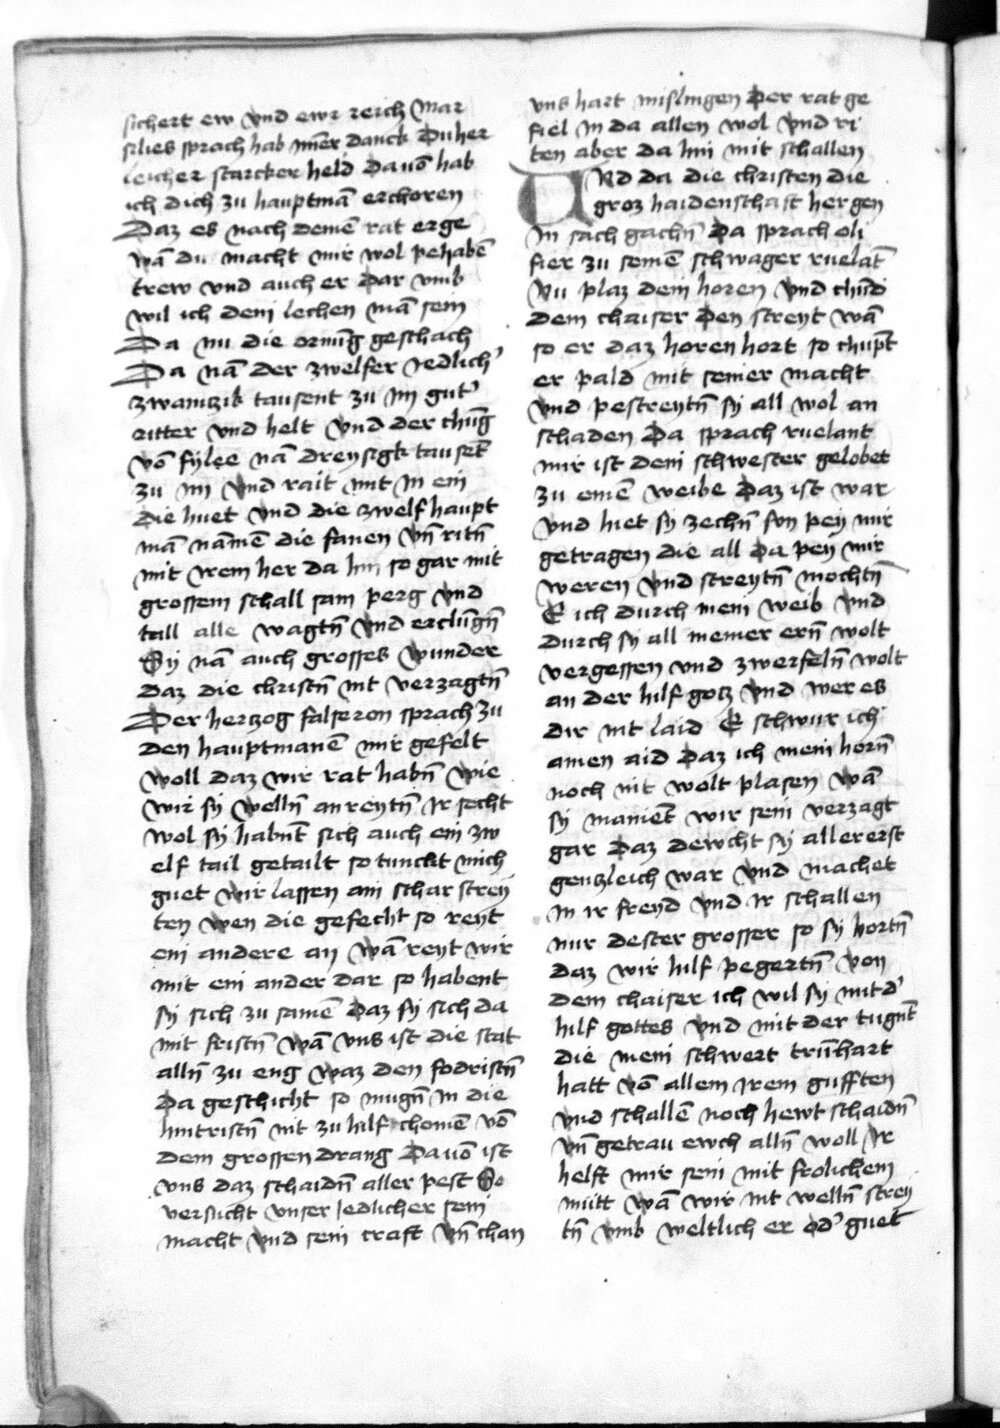 sichert ew vnd ewr reich Mar
silies sprach hab im̄er danck Du her
leicher starcker held Dauō hab
ich dich zu hauptmā erchoren
Daz es nach deinē rat erge
wā du macht mir wol pehabē
trew vnd auch er Dar vmb
wil ich dein lechen mā sein
Da nu die ornūg geschach
Da nā der zwelfer yedlich'
zwainczik tausent zu im gut'
ritter vnd helt vnd der chūg
vō sylee nā dreyssigk tausēt
zu im vnd rait mit in ein
die huet vnd die zwelf haupt
mā namē die fanen vn̄ ritn̄
mit irem her da hin so gar mit
grossem schall sam perg vnd
tall alle wagtn̄ vnd erclūgn̄
Sy nā auch grosses wunder
daz die christn̄ nit verzagtn̄
Der herczog falseron sprach zu
den hauptmanē mir gefelt
woll daz wir rat habn̄ wie
wir sy welln̄ an reytn̄ Ir secht
wol sy habnt sich auch ein zw
elf tail getailt so tunckt mich
guet wir lassen ain schar strey
ten wen die gefecht so reyt
ein andere an wā reyt wir
mit ein ander dar so habent
sy sich zu samē daz sy sich da
mit fristn̄ wā vns ist die stat
alln̄ zu eng waz den fodristn̄
da geschicht so mugn̄ in die
hintristn̄ nit zu hilf chomē vō
dem grossen drang Dauō ist
vns daz schaidn̄ aller pest So
versucht vnser iedlicher sein
macht vnd sein craft vn̄ chan
vns hart mislingen Der rat ge
fiel in da allen wol vnd ri
ten aber da hin mit schallen
Vnd da die christen die
groz haidenschaft her gen
in sach gachn̄ Da sprach oli
fier zu seinē schwager ruelāt
Nu plaz dein horen vnd chūd
dem chaiser den streyt wā
so er daz horen hort so chupt
er pald mit seiner macht
vnd pestreytn̄ sy all wol an
schaden Da sprach ruelant
mir ist dein schwester gelobet
zu einē weibe Daz ist war
vnd hiet sy zechn̄ sun pey mir
getragen die all da pey mir
weren vnd streytn̄ mochtn̄
E ich durch mein weib vnd
durch sy all meiner ern̄ wolt
vergessen vnd zweifeln̄ wolt
an der hilf gotz vnd wer es
dir nit laid E schwur ich
ainen aid daz ich mein horn̄
noch nit wolt plasen wā
sy mainēt wir sein verzagt
gar daz dewcht sy allererst
genczleich war vnd machet
in ir freyd vnd ir schallen
nur dester grosser so sy hortn̄
daz wir hilf pegertn̄ von
dem chaiser ich wil sy mit d'
hilf gottes vnd mit der tugnt
die mein schwert trūhart
hatt vō allem irem gufften
vnd schallē noch hewt schaidn̄
vn̄ getrau ewch alln̄ woll ir
helft mir sein mit frolichem
mütt wā wir nit welln̄ strey
tn̄ vmb weltlich er od' guet